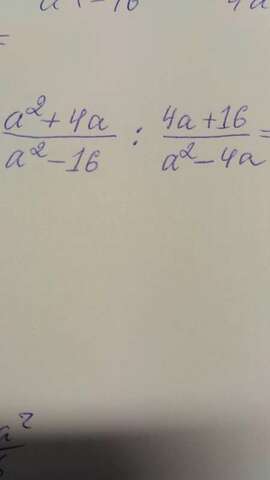 =
a²+4a / a²-16 : 4a+16 / a²-4a =
a²